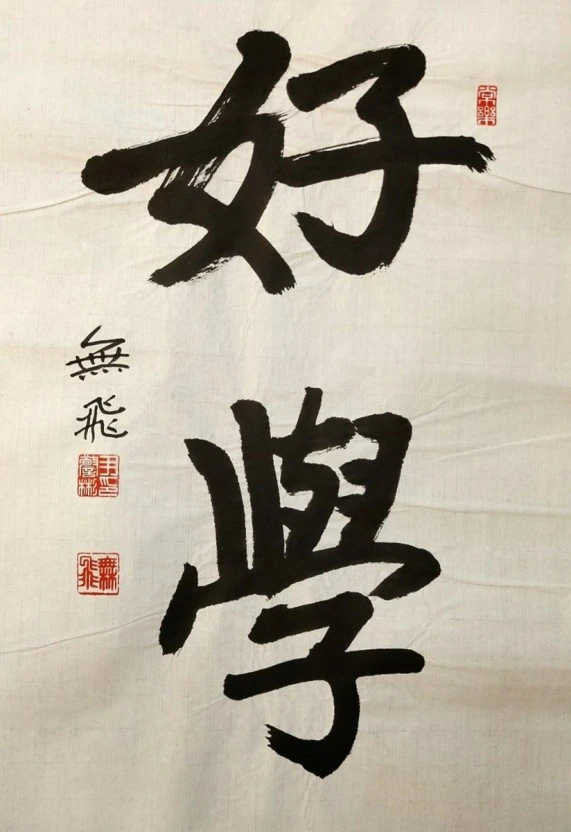 好學
無飛
無飛